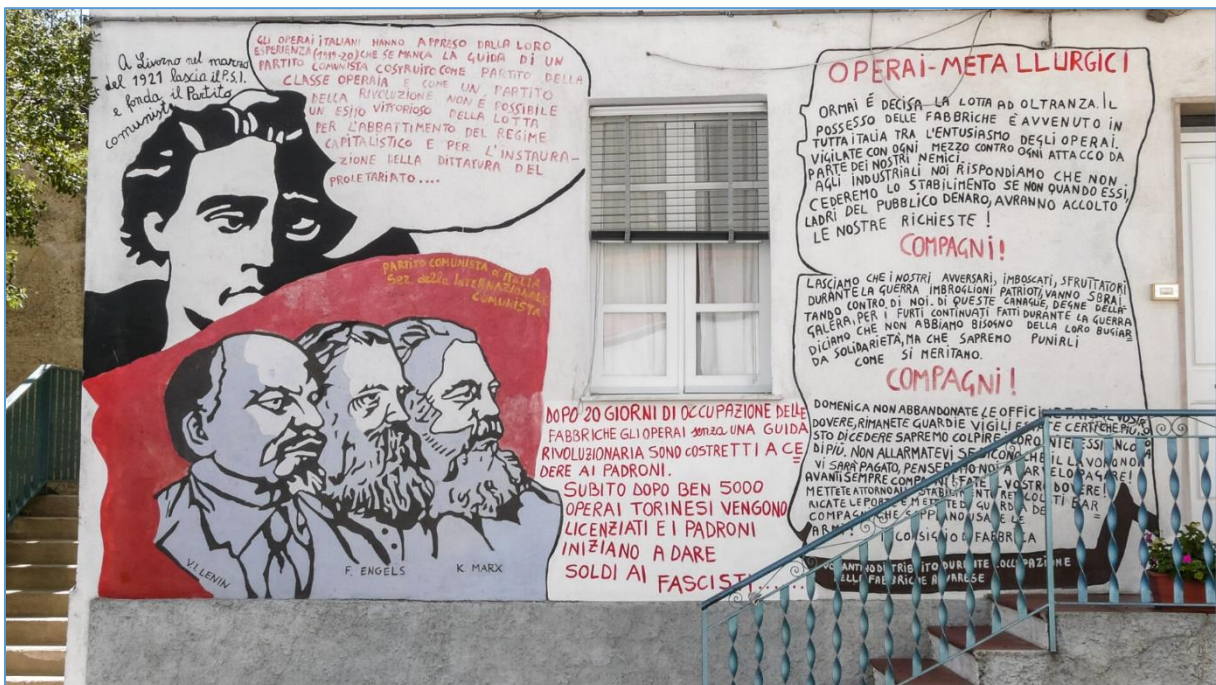 A Livorno nel marzo
del 1921 lascia il P.S.I.
e fonda il Partito
comunista
GLI OPERAI ITALIANI HANNO APPRESO DALLA LORO
ESPERIENZA (1919-20) CHE SE MANCA LA GUIDA DI UN
PARTITO COMUNISTA COSTRUITO COME PARTITO DELLA
CLASSE OPERAIA E COME UN PARTITO
DELLA RIVOLUZIONE NON È POSSIBILE
UN ESITO VITTORIOSO DELLA LOTTA
PER L'ABBATTIMENTO DEL REGIME
CAPITALISTICO E PER L'INSTAURA-
ZIONE DELLA DITTATURA DEL
PROLETARIATO....
PARTITO COMUNISTA d'ITALIA
Sez. della INTERNAZIONALE
COMUNISTA
V.I. LENIN
F. ENGELS
K. MARX
DOPO 20 GIORNI DI OCCUPAZIONE DELLE
FABBRICHE GLI OPERAI senza UNA GUIDA
RIVOLUZIONARIA SONO COSTRETTI A CE
DERE AI PADRONI.
SUBITO DOPO BEN 5000
OPERAI TORINESI VENGONO
LICENZIATI E I PADRONI
INIZIANO A DARE
SOLDI AI FASCISTI......
OPERAI-METALLURGICI
ORMAI É DECISA LA LOTTA AD OLTRANZA. IL
POSSESSO DELLE FABBRICHE È AVVENUTO IN
TUTTA ITALIA TRA L'ENTUSIASMO DEGLI OPERAI.
VIGILATE CON OGNI MEZZO CONTRO OGNI ATTACCO DA
PARTE DEI NOSTRI NEMICI.
AGLI INDUSTRIALI NOI RISPONDIAMO CHE NON
CEDEREMO LO STABILIMENTO SE NON QUANDO ESSI,
LADRI DEL PUBBLICO DENARO, AVRANNO ACCOLTO
LE NOSTRE RICHIESTE!
COMPAGNI!
LASCIAMO CHE I NOSTRI AVVERSARI, IMBOSCATI, SFRUTTATORI
DURANTE LA GUERRA IMBROGLIONI PATRIOTI, VANNO SBRAI
TANDO CONTRO DI NOI. DI QUESTE CANAGLIE, DEGNE DELLA
GALERA, PER I FURTI CONTINUATI FATTI DURANTE LA GUERRA
DICIAMO CHE NON ABBIAMO BISOGNO DELLA LORO BUGIAR
DA SOLIDARIETÀ, MA CHE SAPREMO PUNIRLI
COME SI MERITANO.
COMPAGNI!
DOMENICA NON ABBANDONATE LE OFFICINE FATE IL VOSTRO
DOVERE, RIMANETE GUARDIE VIGILI E CERTE CHE PIUTTO
STO DI CEDERE SAPREMO COLPIRE I LORO INTERESSI ANCORA
DI PIÙ. NON ALLARMATEVI SE DICONO CHE IL LAVORO NON
VI SARÀ PAGATO, PENSEREMO NOI A FARVELO PAGARE!
AVANTI SEMPRE COMPAGNI! FATE IL VOSTRO DOVERE!
METTETE ATTORNO STABILIMENTI RETICOLATI BAR
RICATE LE PORTE E METTETE DI GUARDIA DEI
COMPAGNI CHE SAPPIANO USARE LE
ARMI! CONSIGLIO DI FABBRICA
VOLANTINO DISTRIBUITO DURANTE L'OCCUPAZIONE
DELLE FABBRICHE A VARESE